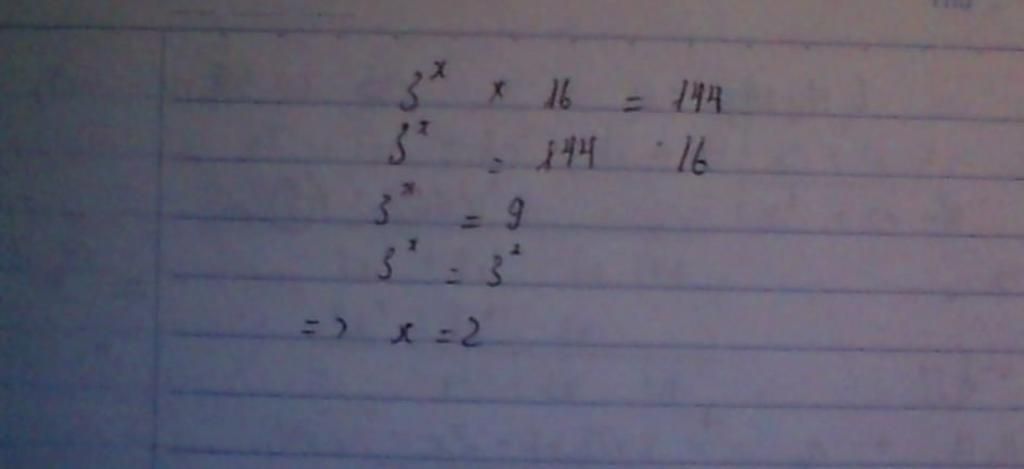 3ˣ × 16 = 144
3ˣ = 144 : 16
3ˣ = 9
3ˣ = 3²
=> x = 2